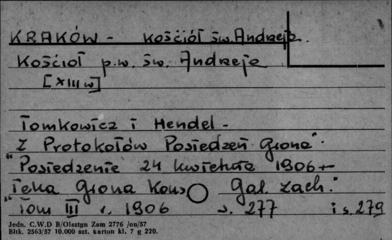 KRAKÓW - Kościół św. Andrzeja.
Kościoł p.w. św. Andrzeja
[XIII w]
Tomkowicz i Hendel -
Z Protokołów Posiedzeń Grona"
"Posiedzenie 24 kwietnia 1906 -
Teka Grona Kons Gal. Zach."
Tom III r. 1906 s. 277 i s. 279
Jedn. C.W.D B/Olsztyn Zam 2776 /on/57
Bltk. 2563/57 10.000 szt. karton kl. 7 g 220.